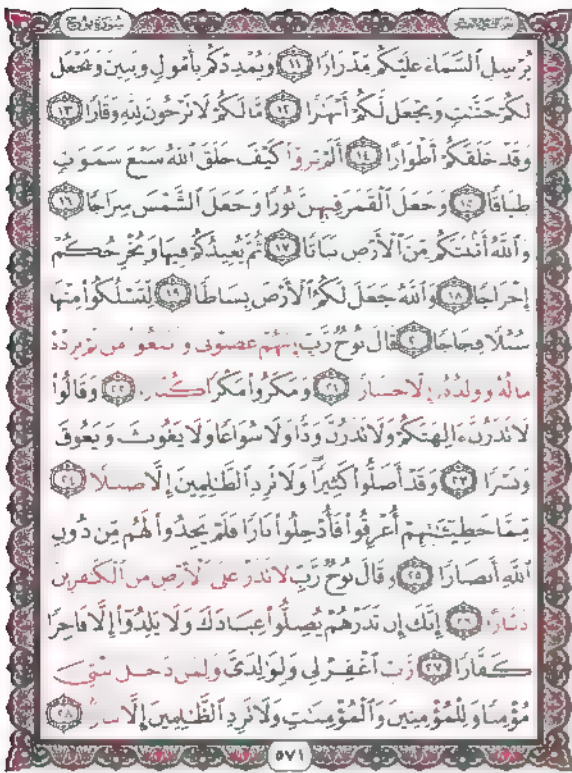 سُورَةُ نُوحٍ
يُرْسِلِ ٱلسَّمَآءَ عَلَيْكُم مِّدْرَارًا ١١ وَيُمْدِدْكُم بِأَمْوَٰلٍ وَبَنِينَ وَيَجْعَل
لَّكُمْ جَنَّٰتٍ وَيَجْعَل لَّكُمْ أَنْهَٰرًا ١٢ مَّا لَكُمْ لَا تَرْجُونَ لِلَّهِ وَقَارًا ١٣
وَقَدْ خَلَقَكُمْ أَطْوَارًا ١٤ أَلَمْ تَرَوْا۟ كَيْفَ خَلَقَ ٱللَّهُ سَبْعَ سَمَٰوَٰتٍ
طِبَاقًا ١٥ وَجَعَلَ ٱلْقَمَرَ فِيهِنَّ نُورًا وَجَعَلَ ٱلشَّمْسَ سِرَاجًا ١٦
وَٱللَّهُ أَنۢبَتَكُم مِّنَ ٱلْأَرْضِ نَبَاتًا ١٧ ثُمَّ يُعِيدُكُمْ فِيهَا وَيُخْرِجُكُمْ
إِخْرَاجًا ١٨ وَٱللَّهُ جَعَلَ لَكُمُ ٱلْأَرْضَ بِسَاطًا ١٩ لِّتَسْلُكُوا۟ مِنْهَا
سُبُلًا فِجَاجًا ٢٠ قَالَ نُوحٌ رَّبِّ إِنَّهُمْ عَصَوْنِى وَٱتَّبَعُوا۟ مَن لَّمْ يَزِدْهُ
مَالُهُۥ وَوَلَدُهُۥٓ إِلَّا خَسَارًا ٢١ وَمَكَرُوا۟ مَكْرًا كُبَّارًا ٢٢ وَقَالُوا۟
لَا تَذَرُنَّ ءَالِهَتَكُمْ وَلَا تَذَرُنَّ وَدًّا وَلَا سُوَاعًا وَلَا يَغُوثَ وَيَعُوقَ
وَنَسْرًا ٢٣ وَقَدْ أَضَلُّوا۟ كَثِيرًا وَلَا تَزِدِ ٱلظَّٰلِمِينَ إِلَّا ضَلَٰلًا ٢٤
مِّمَّا خَطِيٓـَٰٔتِهِمْ أُغْرِقُوا۟ فَأُدْخِلُوا۟ نَارًا فَلَمْ يَجِدُوا۟ لَهُم مِّن دُونِ
ٱللَّهِ أَنصَارًا ٢٥ وَقَالَ نُوحٌ رَّبِّ لَا تَذَرْ عَلَى ٱلْأَرْضِ مِنَ ٱلْكَٰفِرِينَ
دَيَّارًا ٢٦ إِنَّكَ إِن تَذَرْهُمْ يُضِلُّوا۟ عِبَادَكَ وَلَا يَلِدُوٓا۟ إِلَّا فَاجِرًا
كَفَّارًا ٢٧ رَّبِّ ٱغْفِرْ لِى وَلِوَٰلِدَىَّ وَلِمَن دَخَلَ بَيْتِىَ
مُؤْمِنًا وَلِلْمُؤْمِنِينَ وَٱلْمُؤْمِنَٰتِ وَلَا تَزِدِ ٱلظَّٰلِمِينَ إِلَّا تَبَارًۢا ٢٨
٥٧١